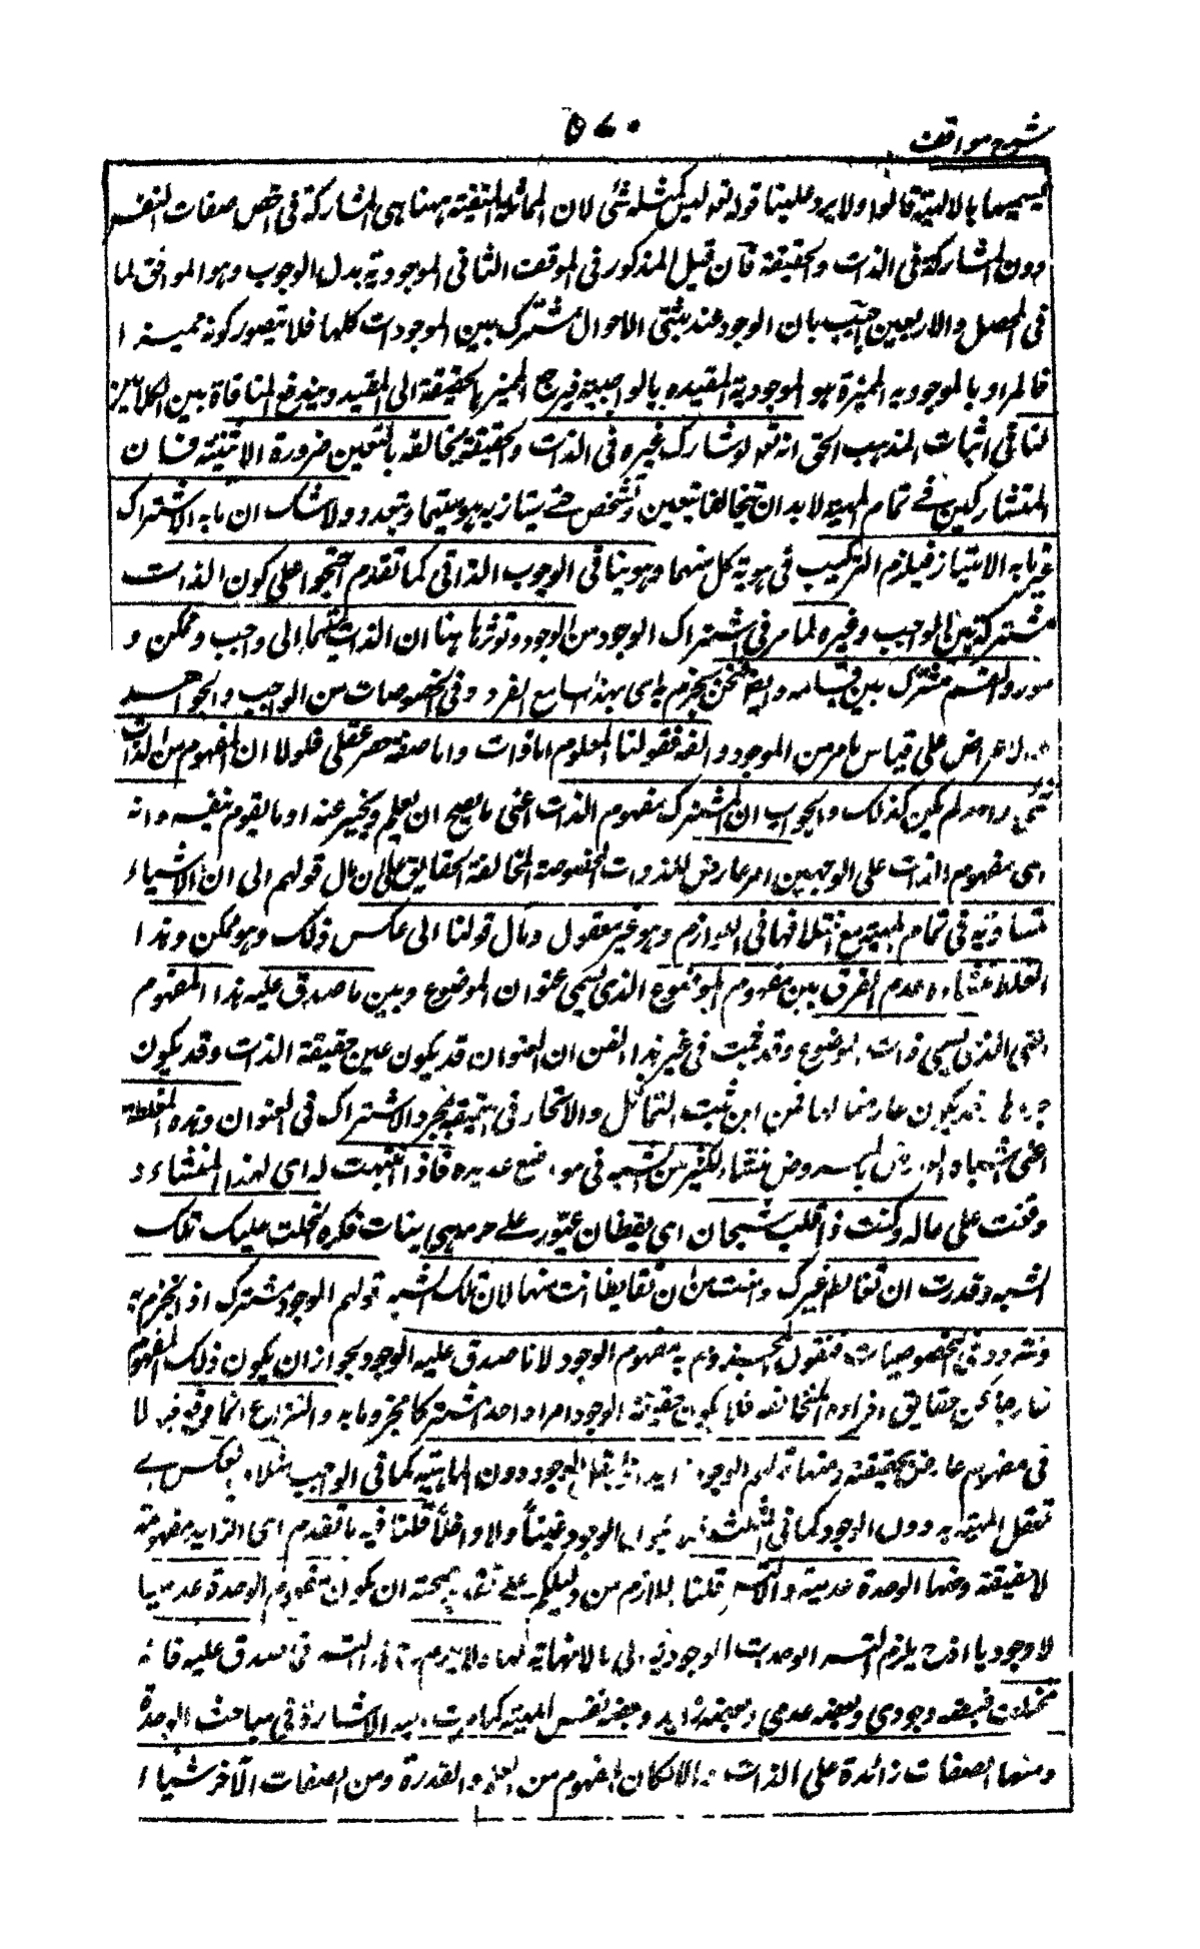 شرح مواقف
٥٧٠
يسميها بالالهية قالوا ولا يرد علينا قوله تعه ليس كمثله شئ لان المماثلة المنفية ههنا هى المشاركة فى اخص صفات النفس
دون المشاركة فى الذات والحقيقة فان قيل المذكور فى الموقف الثانى الموجودية بدل الوجوب وهو الموافق لما
فى المحصل والاربعين اجيب بان الوجود عند مثبتى الاحوال مشترك بين الموجودات كلها فلا يتصور كونه مميزا
فالمراد بالموجودية المميزة هو الموجودية المقيدة بالواجبية فيرجع المميز بالحقيقة الى المقيد ويندفع المنافاة بين الكلامين
لنا فى اثبات المذهب الحق انه تعه لو شارك غيره فى الذات والحقيقة لخالفه بالتعين ضرورة الاثنينية فان
المتشاركين فى تمام المهية لابد ان يتخالفا بتعين وتشخص حتى يمتاز به هويتهما ويتعددا ولا شك ان ما به الاشتراك
غير ما به الامتياز فيلزم التركيب فى هوية كل منهما وهو ينافى الوجوب الذاتى كما تقدم احتجوا على كون الذات
مشتركة بين الواجب وغيره بما مر فى اشتراك الوجود من الوجوه وتوثرها هنا ان الذات تنقسم الى واجب وممكن و
مورد القسمة مشترك بين قسامه وايضا فنحن نجزم به اى بهذا مع التردد فى الخصوصيات من الواجب والجواهر
والاعراض على قياس ما مر من الوجود والفه فقولنا المعلوم اما ذات واما صفة حصر عقلى فلولا ان المفهوم من الذات
شئ واحد لم يكن كذلك والجواب ان المشترك مفهوم الذات اعنى ما يصح ان يعلم ويخبر عنه او ما يقوم بنفسه وانه
اى مفهوم الذات على الوجهين امر عارض للذوات المخصوصة المتخالفة الحقايق على ان مآل قولهم الى ان الاشياء
متساوية فى تمام المهية مع اختلافها فى اللوازم وهو غير معقول ومآل قولنا الى عكس ذلك وهو ممكن وهذا
الغلط منشاءه عدم الفرق بين مفهوم الموضوع الذى يسمى عنوان الموضوع وبين ما صدق عليه هذا المفهوم
اعنى الذى يسمى ذات الموضوع وقد ثبت فى غير هذا الفن ان العنوان قد يكون عين حقيقة الذات وقد يكون
جزءها وقد يكون عارضا لها فمن اين ثبت التماثل والاتحاد فى الحقيقة بمجرد الاشتراك فى العنوان وهذه المغلطة
اعنى اشتباه العارض بالمعروض منشاء لكثير من الشبه فى مواضع عديدة فاذا انتبهت له اى لهذا المنشاء و
وقفت على حاله وكنت ذا قلب شيحان اى يقظان غيور على حرمه هى بنات فكره انجلت عليك تلك
الشبه وقدرت ان تغالط غيرك وامنت من ان تغالط انت منها لان تلك الشبه قولهم الوجود مشترك اذ نجزم به
ونتردد فى الخصوصيات فنقول المجزوم به مفهوم الوجود لا ما صدق عليه الوجود بجواز ان يكون ذلك المفهوم
خارجا عن حقايق افراده المتخالفة فلا يكون حقيقة الوجود امرا واحدا مشتركا مجزوما به والنزاع انما وقع فيه لا
فى مفهوم عارض لحقيقته ومنها قولهم الوجود زايد اذ يعقل الوجود دون الماهية كما فى الواجب مثلا وبالعكس اى
تعقل المهية دون الوجود كما فى المثلث فيكون الوجود عينا ولا داخلا قلنا فيه ما تقدم اى الزايد مفهومه
لا حقيقته ومنها الوحدة عدمية والا تسلسل قلنا اللازم من دليلكم على تقدير صحته ان يكون مفهوم الوحدة عدميا
لا وجوديا اذح يلزم تسلسل الوحدات الوجودية الى ما لا نهاية لها ولا يلزم هذا التسلسل فى ما صدق عليه فانه
مختلف فبعضه وجودى وبعضه عدمى وبعضه زايد وبعضه نفس المهية كما مرت اليه الاشارة فى مباحث الوحدة
ومنها الصفات زائدة على الذات والا لكان المفهوم من العلم والقدرة ومن الصفات الآخر شيئا